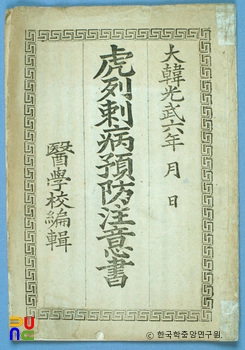 大韓光武六年 月 日
虎列剌病預防注意書
醫學校編輯
© 한국학중앙연구원